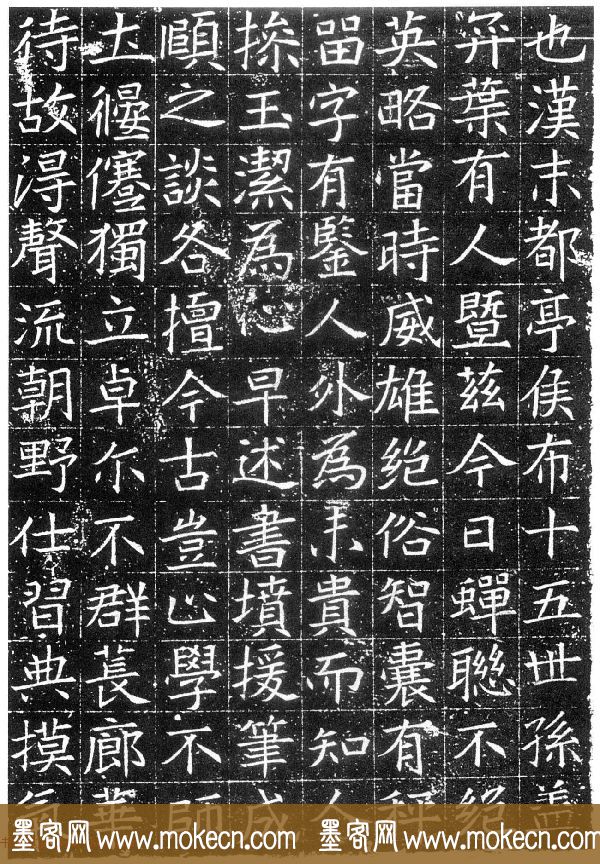 也漢末都亭侯布十五世孫蓋
弈葉有人暨茲今日蟬聯不絕
英略當時威雄絕俗智囊有稱
留字有鑒人外為末貴而知人
操玉潔為心早述書墳援筆成
頋之談各擅今古豈止學不師
土偃蹇獨立卓尓不群萇廊
待故淂聲流朝野仕習典摸
墨客网 www.mokecn.com 墨客网 www.mokecn.com